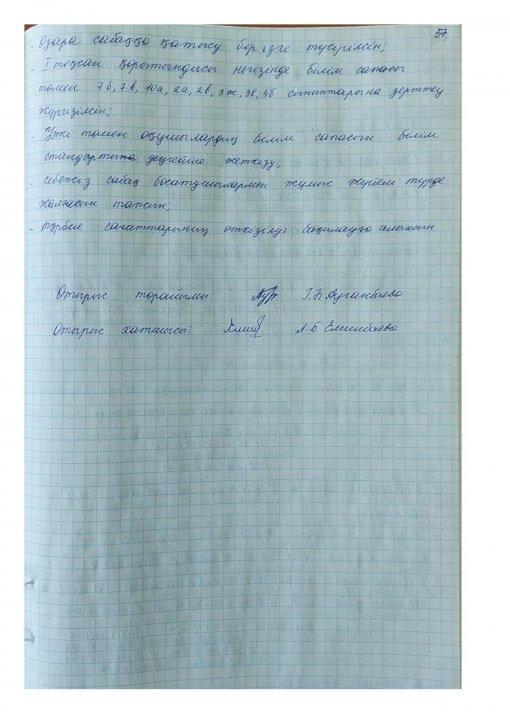 57
- Өзара сабаққа қатысу бөр ізге түсірілсін;
- I тоқсан қорытындысы негізінде білім сапасы
төмен 7б, 7в, 10а, 2а, 2в, 3ж, 3е, 4б сыныптарына зерттеу
жүргізілсін;
- Үлгі төмен оқушылардың білім сапасын білім
стандартына деңгейіне жеткізу;
- себепсіз сабақ босатушылармен жұмыс жүйелі түрде
жалғасын тапсын;
- тәрбие сағаттарының өткізілуі бақылауға алынсын
Отырыс төрайымы: Г.Б.
Отырыс хатшысы: Л.Б